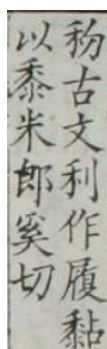 𥝢古文利作履黏
以黍米郎奚切